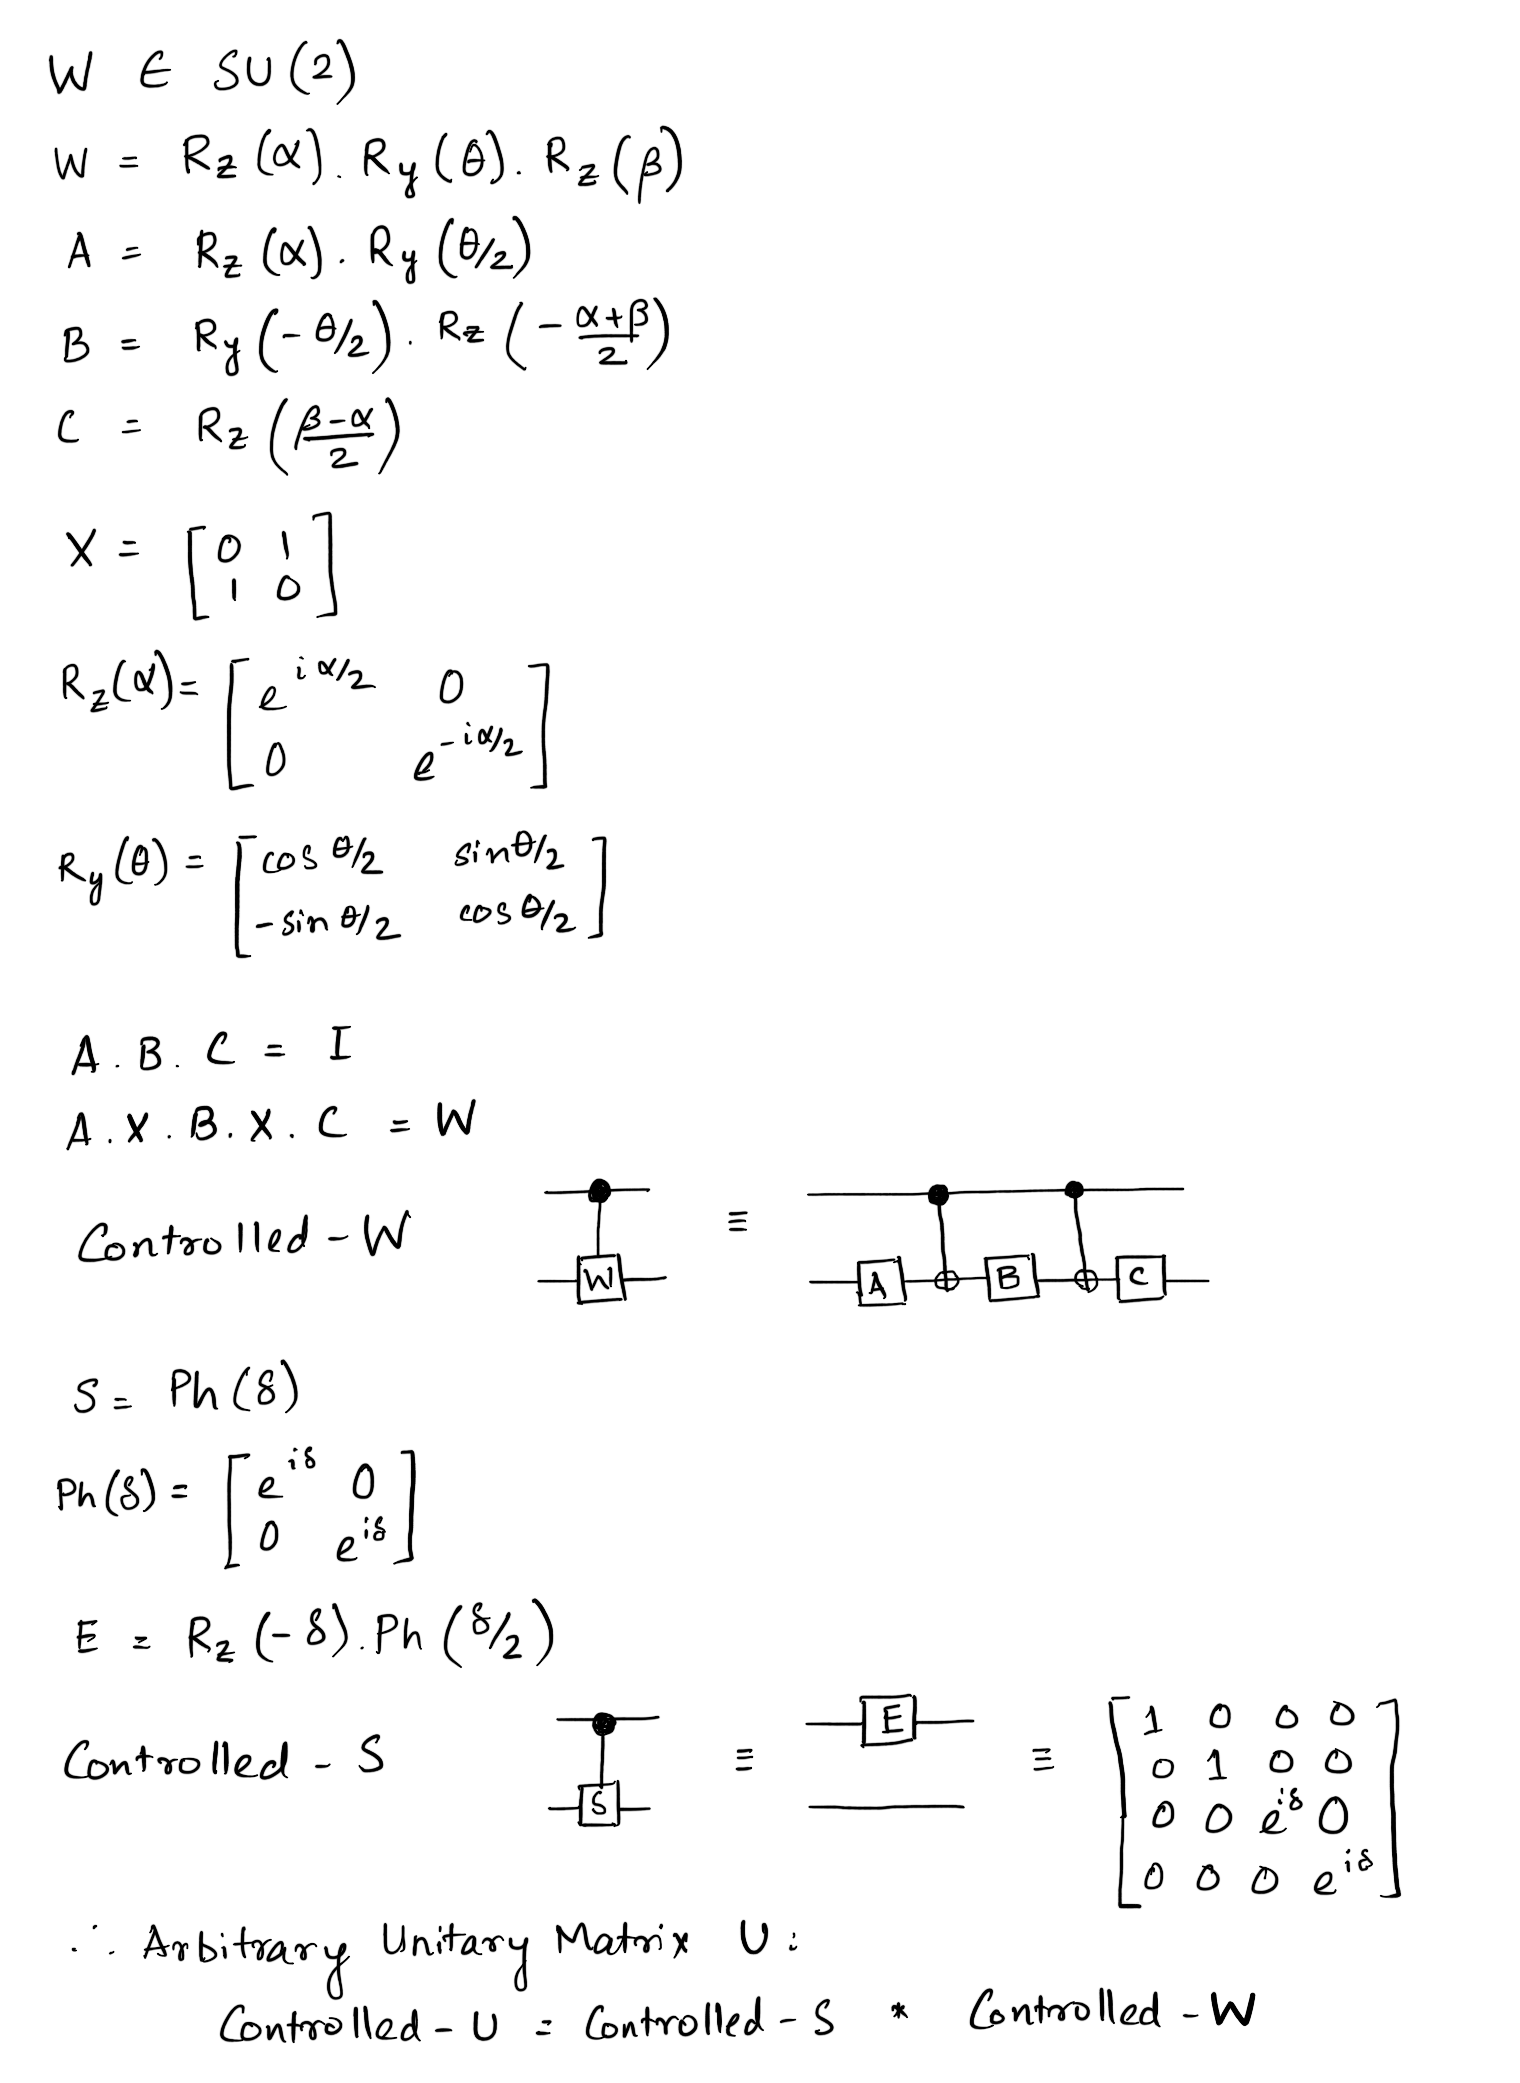 W ∈ SU(2)
W = Rz(α). Ry(θ). Rz(β)
A = Rz(α). Ry(θ/2)
B = Ry(-θ/2). Rz(-α+β/2)
C = Rz(β-α/2)
X = [0 1
1 0]
Rz(α) = [e^iα/2 0
0 e^-iα/2]
Ry(θ) = [cos θ/2 sin θ/2
-sin θ/2 cos θ/2]
A. B. C = I
A. X. B. X. C = W
Controlled-W W ≡ A B C
S = Ph(δ)
Ph(δ) = [e^iδ 0
0 e^iδ]
E = Rz(-δ). Ph(δ/2)
Controlled-S S ≡ E ≡ [1 0 0 0
0 1 0 0
0 0 e^iδ 0
0 0 0 e^iδ]
∴ Arbitrary Unitary Matrix U:
Controlled-U = Controlled-S * Controlled-W